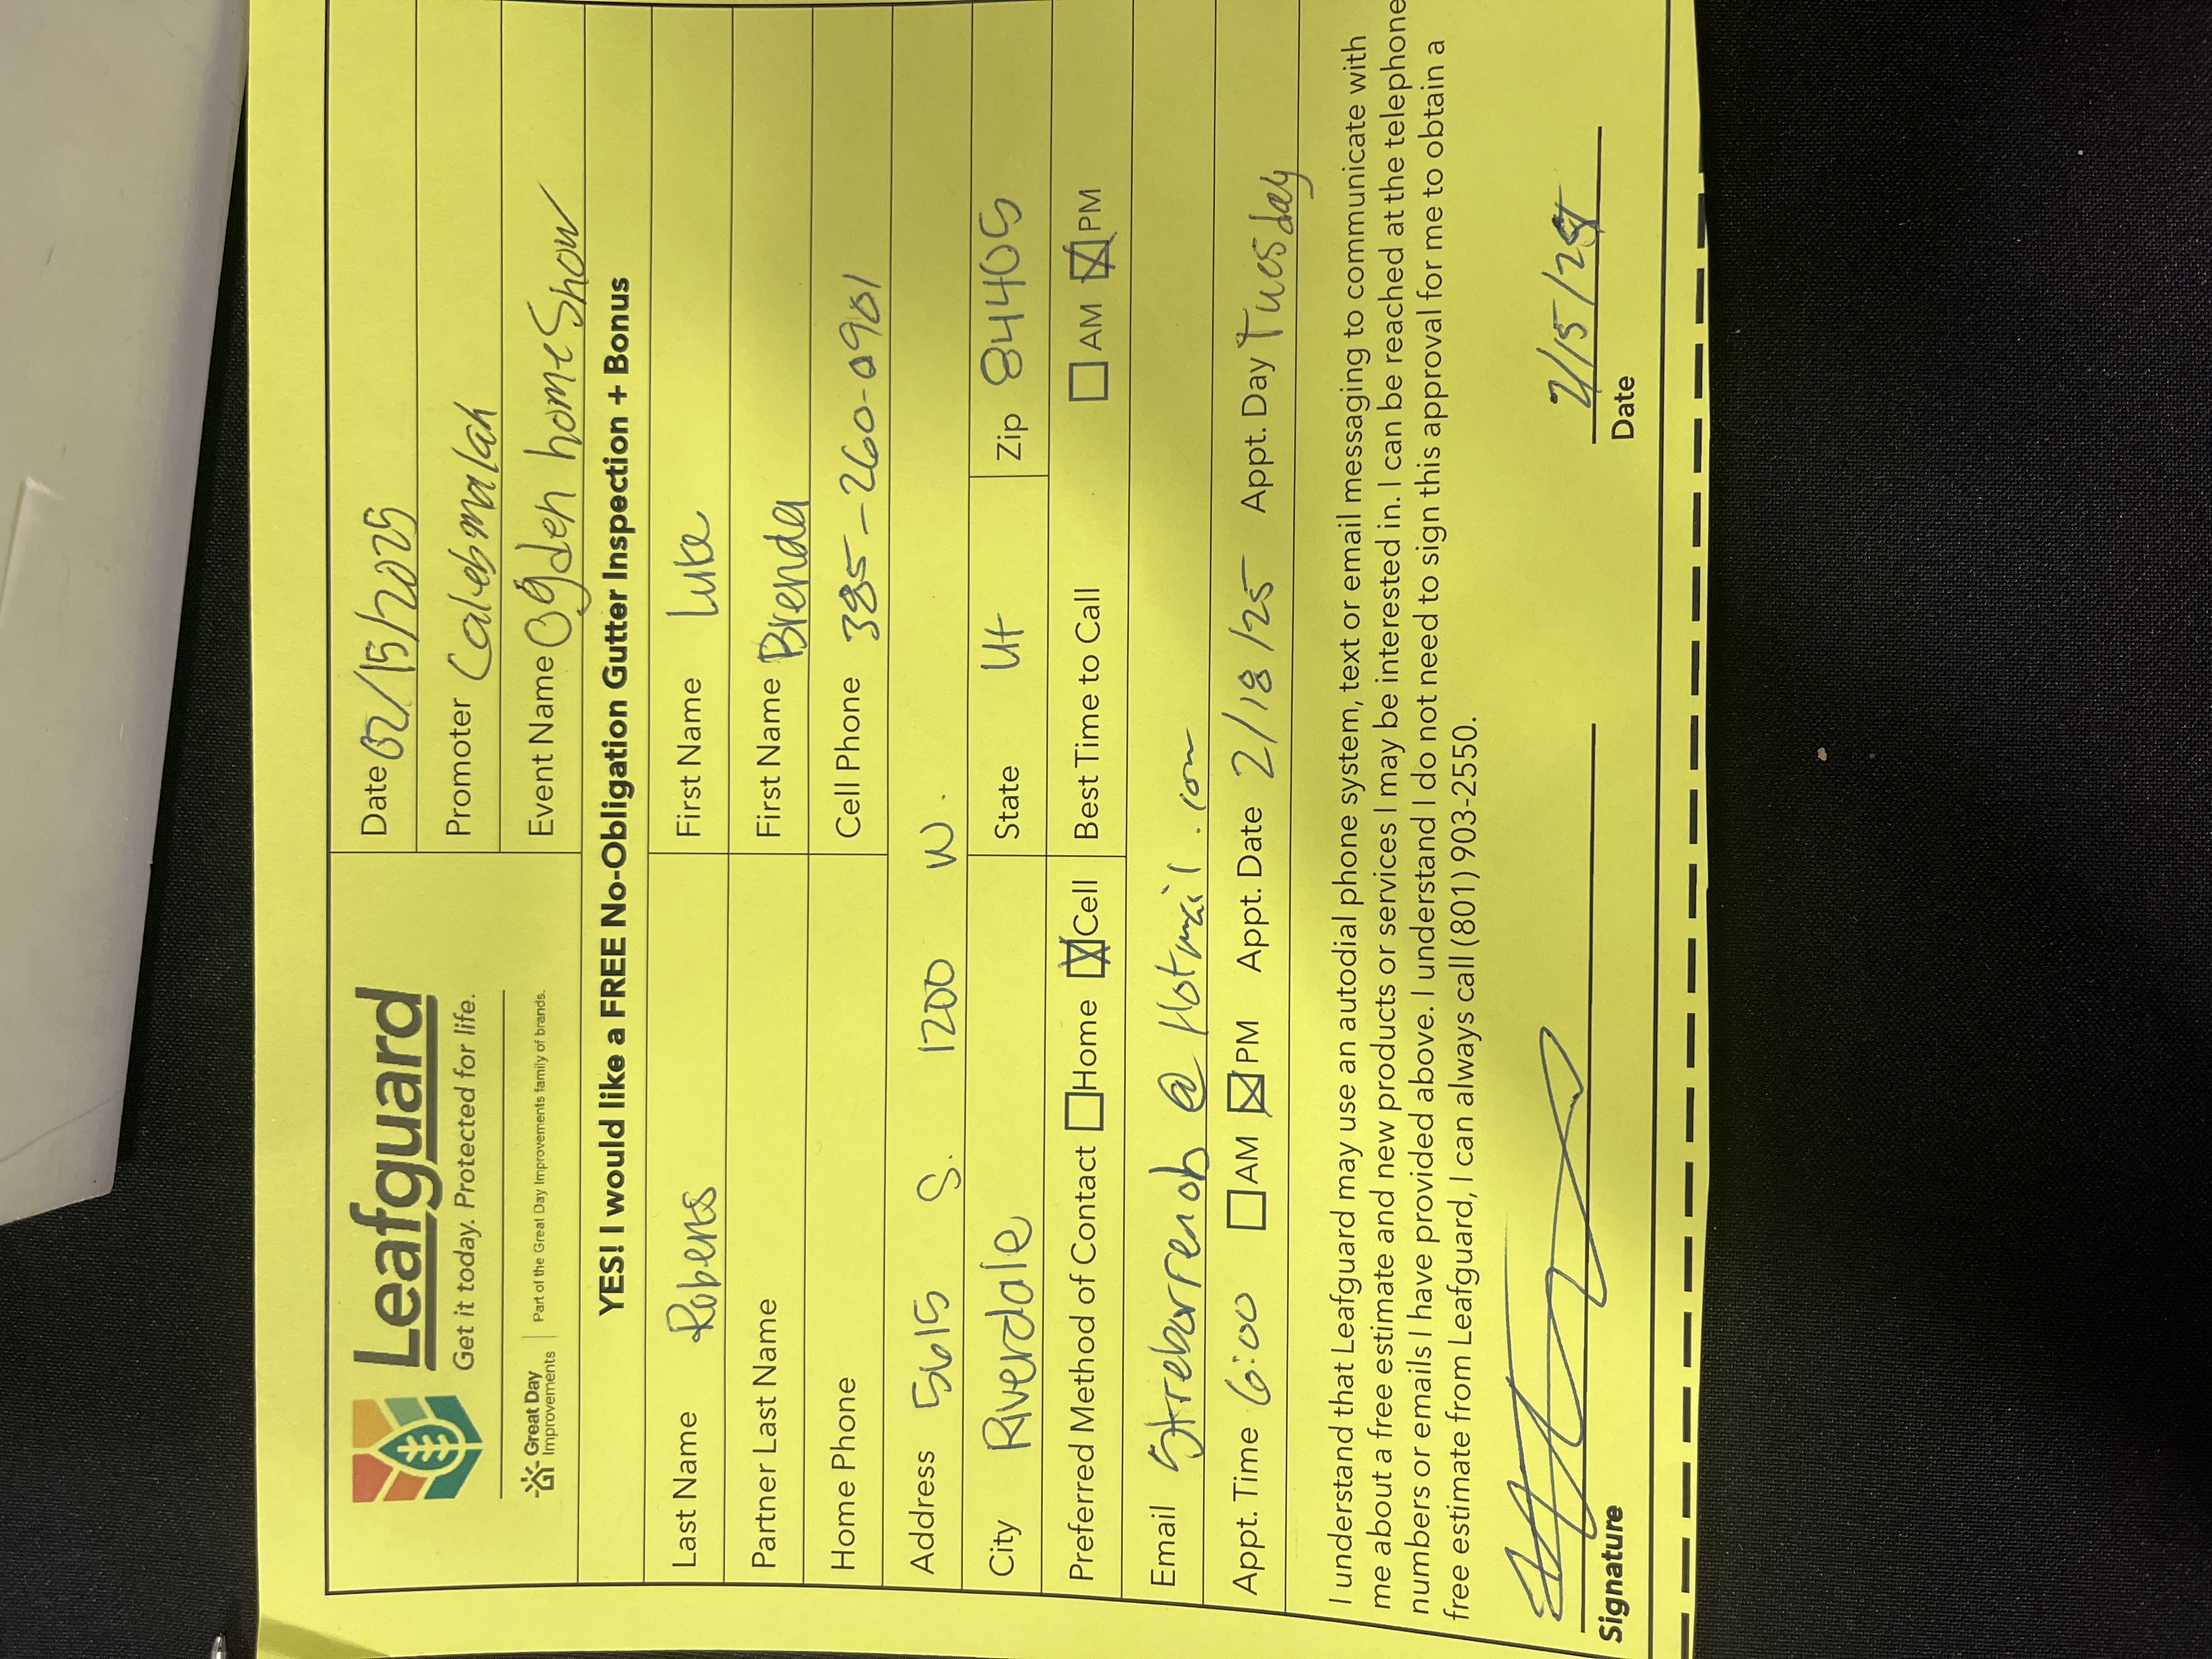 Leafguard
Get it today. Protected for life.
Great Day Improvements Part of the Great Day Improvements family of brands.
Date 02/15/2025
Promoter Caleb malah
Event Name Ogden home Show
YES! I would like a FREE No-Obligation Gutter Inspection + Bonus
Last Name Roberts First Name Luke
Partner Last Name First Name Brenda
Home Phone Cell Phone 385-260-0901
Address 5615 S. 1200 W.
City Riverdale State Ut Zip 84405
Preferred Method of Contact Home Cell Best Time to Call AM PM
Email @ Hotmail.com
Appt. Time 6:00 AM PM Appt. Date 2/18/25 Appt. Day Tuesday
I understand that Leafguard may use an autodial phone system, text or email messaging to communicate with
me about a free estimate and new products or services I may be interested in. I can be reached at the telephone
numbers or emails I have provided above. I understand I do not need to sign this approval for me to obtain a
free estimate from Leafguard, I can always call (801) 903-2550.
2/15/25
Signature Date